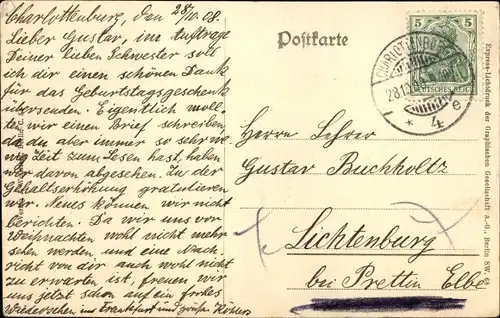 Charlottenburg, den 28/10. 08.
Lieber Gustav, im Auftrage
Deiner lieben Schwester soll
ich dir einen schönen Dank
für das Geburtstagsgeschenk
übersenden. Eigentlich woll-
ten wir einen Brief schreiben,
da du aber immer so sehr we-
nig Zeit zum Lesen hast, haben
wir davon abgesehen. Zu der
Gehaltserhöhung gratulieren
wir. Neues können wir nicht
berichten. Da wir uns vor
Weihnachten wohl nicht mehr
sehen werden, und eine Nach-
richt von dir auch wohl nicht
zu erwarten ist, freuen wir
uns jetzt schon auf ein frohes
Wiedersehen in Frankfurt und grüße Köhlers
Postkarte
5 5
DEUTSCHES REICH
CHARLOTTENBURG
28.10
* 4 e
Herrn Lehrer
Gustav Buchholtz
Lichtenburg
bei Prettin Elbe
Express-Lichtdruck der Graphischen Gesellschaft A.-G., Berlin SW. 68